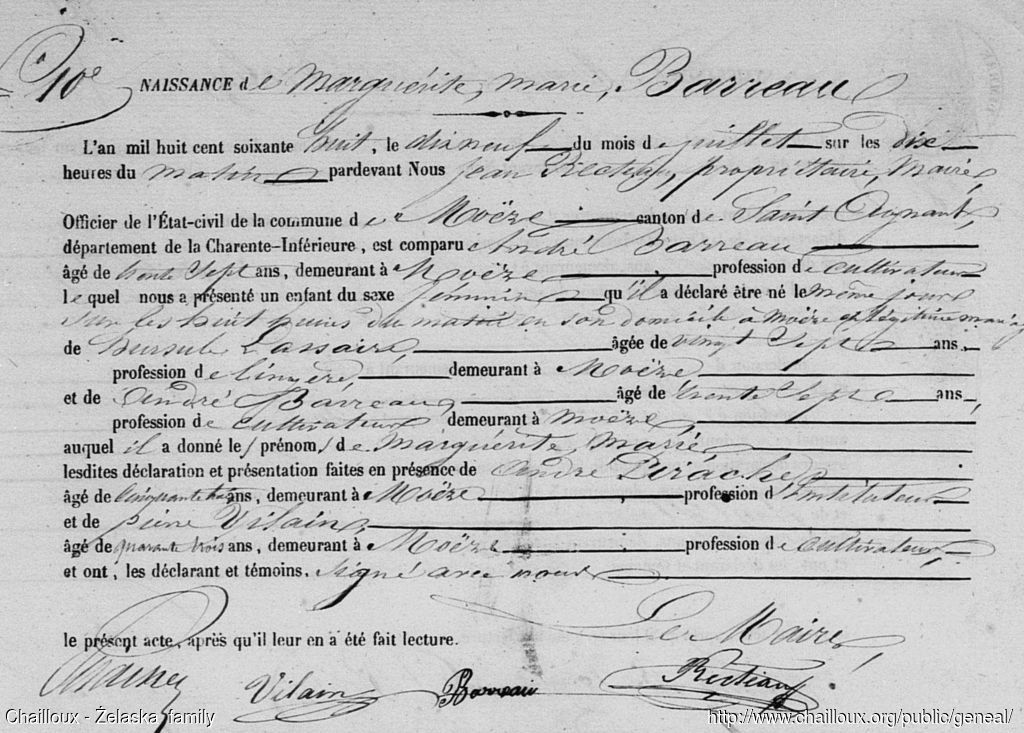 10e NAISSANCE de Marguérite, Marie, Barreau
L'an mil huit cent soixante huit, le dixneuf du mois de juillet sur les dix
heures du matin pardevant Nous Jean propriétaire, Maire,
Officier de l'État-civil de la commune de Moëze canton de Saint Agnant,
département de la Charente-Inférieure, est comparu André Barreau
âgé de trente Sept ans, demeurant à Moëze profession de Cultivateur
lequel nous a présenté un enfant du sexe féminin qu'il a déclaré être né le même jour
Sur les huit heures du matin en son domicile à Moëze en légitime mariage
de Lassaire, âgée de vingt Sept ans,
profession de demeurant à Moëze,
et de André Barreau, âgé de trente Sept ans,
profession de cultivateur demeurant à Moëze,
auquel il a donné les prénoms de Marguérite, Marie
lesdites déclaration et présentation faites en présence de André
âgé de Cinquante ans, demeurant à Moëze profession d'Instituteur
et de pierre Vilain
âgé de quarante trois ans, demeurant à Moëze profession de Cultivateur,
et ont, les déclarant et témoins, Signé avec nous
le présent acte, après qu'il leur en a été fait lecture.
Le Maire,
Vilain Barreau
Chailloux - Żelaska family http://www.chailloux.org/public/geneal/